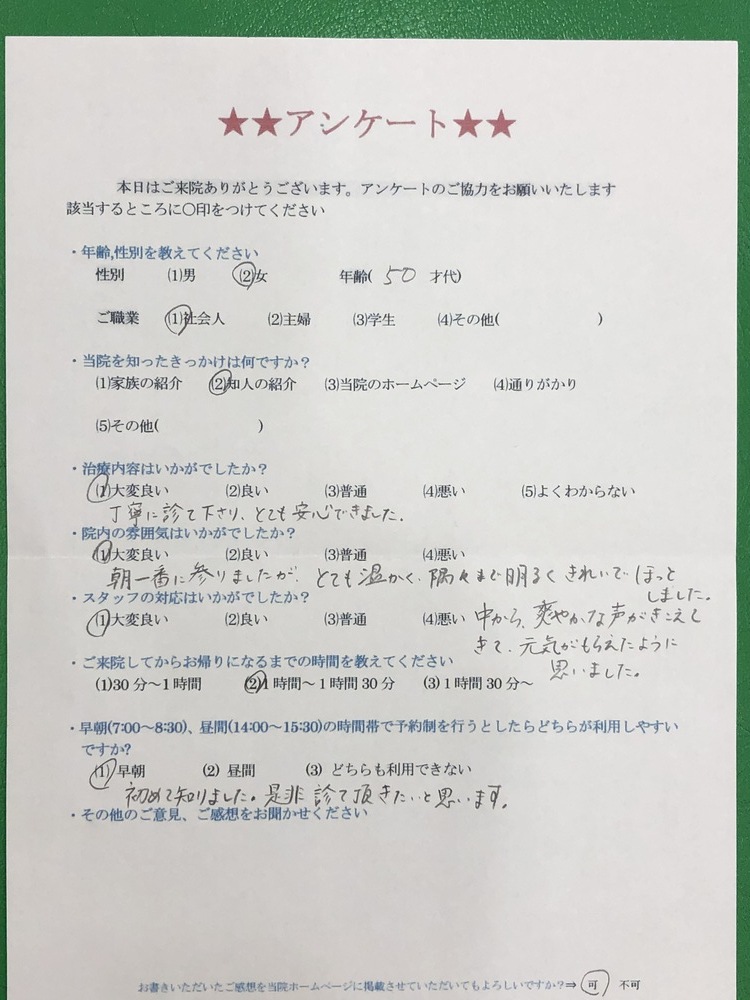 ★★アンケート★★
本日はご来院ありがとうございます。アンケートのご協力をお願いいたします
該当するところに○印をつけてください
・年齢,性別を教えてください
性別 (1)男 (2)女 年齢( 50 才代)
ご職業 (1)社会人 (2)主婦 (3)学生 (4)その他( )
・当院を知ったきっかけは何ですか?
(1)家族の紹介 (2)知人の紹介 (3)当院のホームページ (4)通りがかり
(5)その他( )
・治療内容はいかがでしたか?
(1)大変良い (2)良い (3)普通 (4)悪い (5)よくわからない
丁寧に診て下さり、とても安心できました。
・院内の雰囲気はいかがでしたか?
(1)大変良い (2)良い (3)普通 (4)悪い
朝一番に参りましたが、とても温かく、隅々まで明るくきれいでほっと
しました。
・スタッフの対応はいかがでしたか?
(1)大変良い (2)良い (3)普通 (4)悪い
中から、爽やかな声がきこえて
きて、元気がもらえたように
思いました。
・ご来院してからお帰りになるまでの時間を教えてください
(1)30分～1時間 (2)1時間～1時間30分 (3)1時間30分～
・早朝(7:00～8:30)、昼間(14:00～15:30)の時間帯で予約制を行うとしたらどちらが利用しやすい
ですか?
(1) 早朝 (2) 昼間 (3) どちらも利用できない
初めて知りました。是非診て頂きたいと思います。
・その他のご意見、ご感想をお聞かせください
お書きいただいたご感想を当院ホームページに掲載させていただいてもよろしいですか?⇒ 可 不可